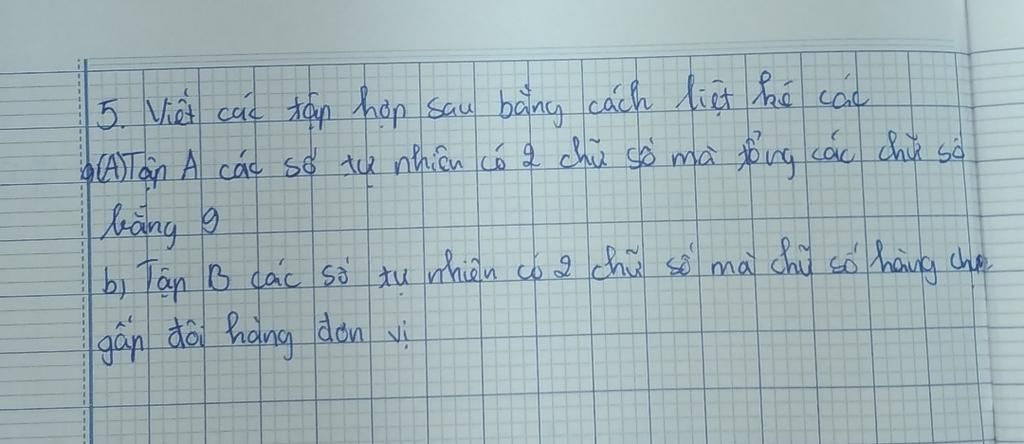 5. Viết các tập hợp sau bằng cách liệt kê các
a(A)Tập A các số tự nhiên có 2 chữ số mà tổng các chữ số
bằng 9
b) Tập B các số tự nhiên có 2 chữ số mà chữ số hàng chục
gấp đôi hàng đơn vị